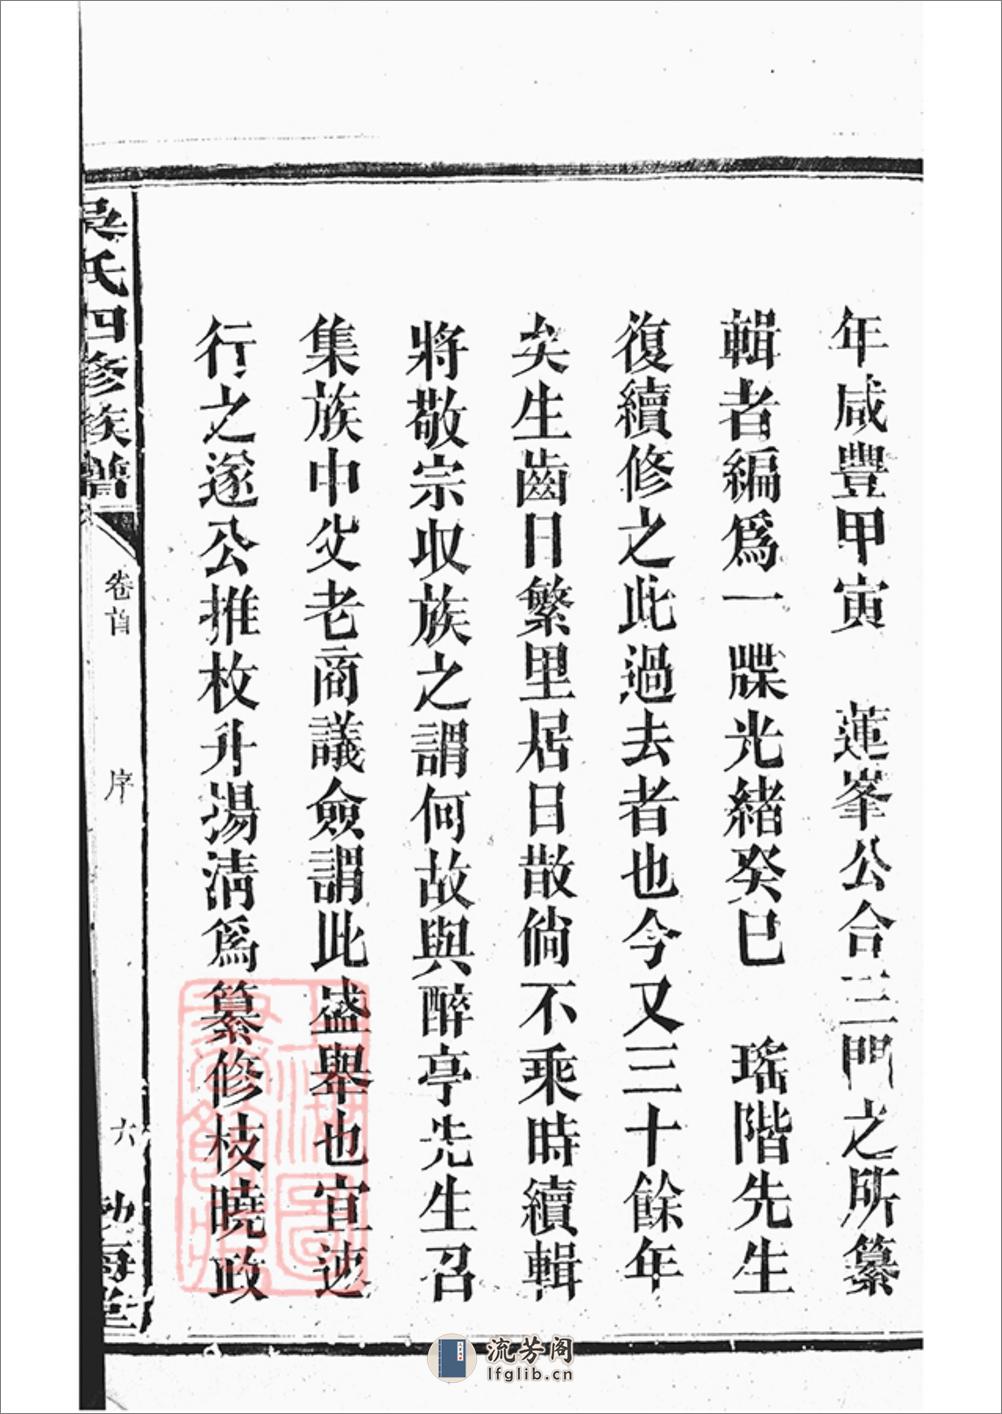 年咸豐甲寅　蓮峯公合三門之所纂
輯者編爲一牒光緒癸巳　瑤階先生
復續修之此過去者也今又三十餘年
矣生齒日繁里居日散倘不乘時續輯
將敬宗收族之謂何故與醉亭先生召
集族中父老商議僉謂此盛舉也宜速
行之遂公推枚升揚清爲纂修枝曉政
吳氏四修族譜
卷首
序
六
海堂
上海圖書館藏
流芳阁
lfglib.cn